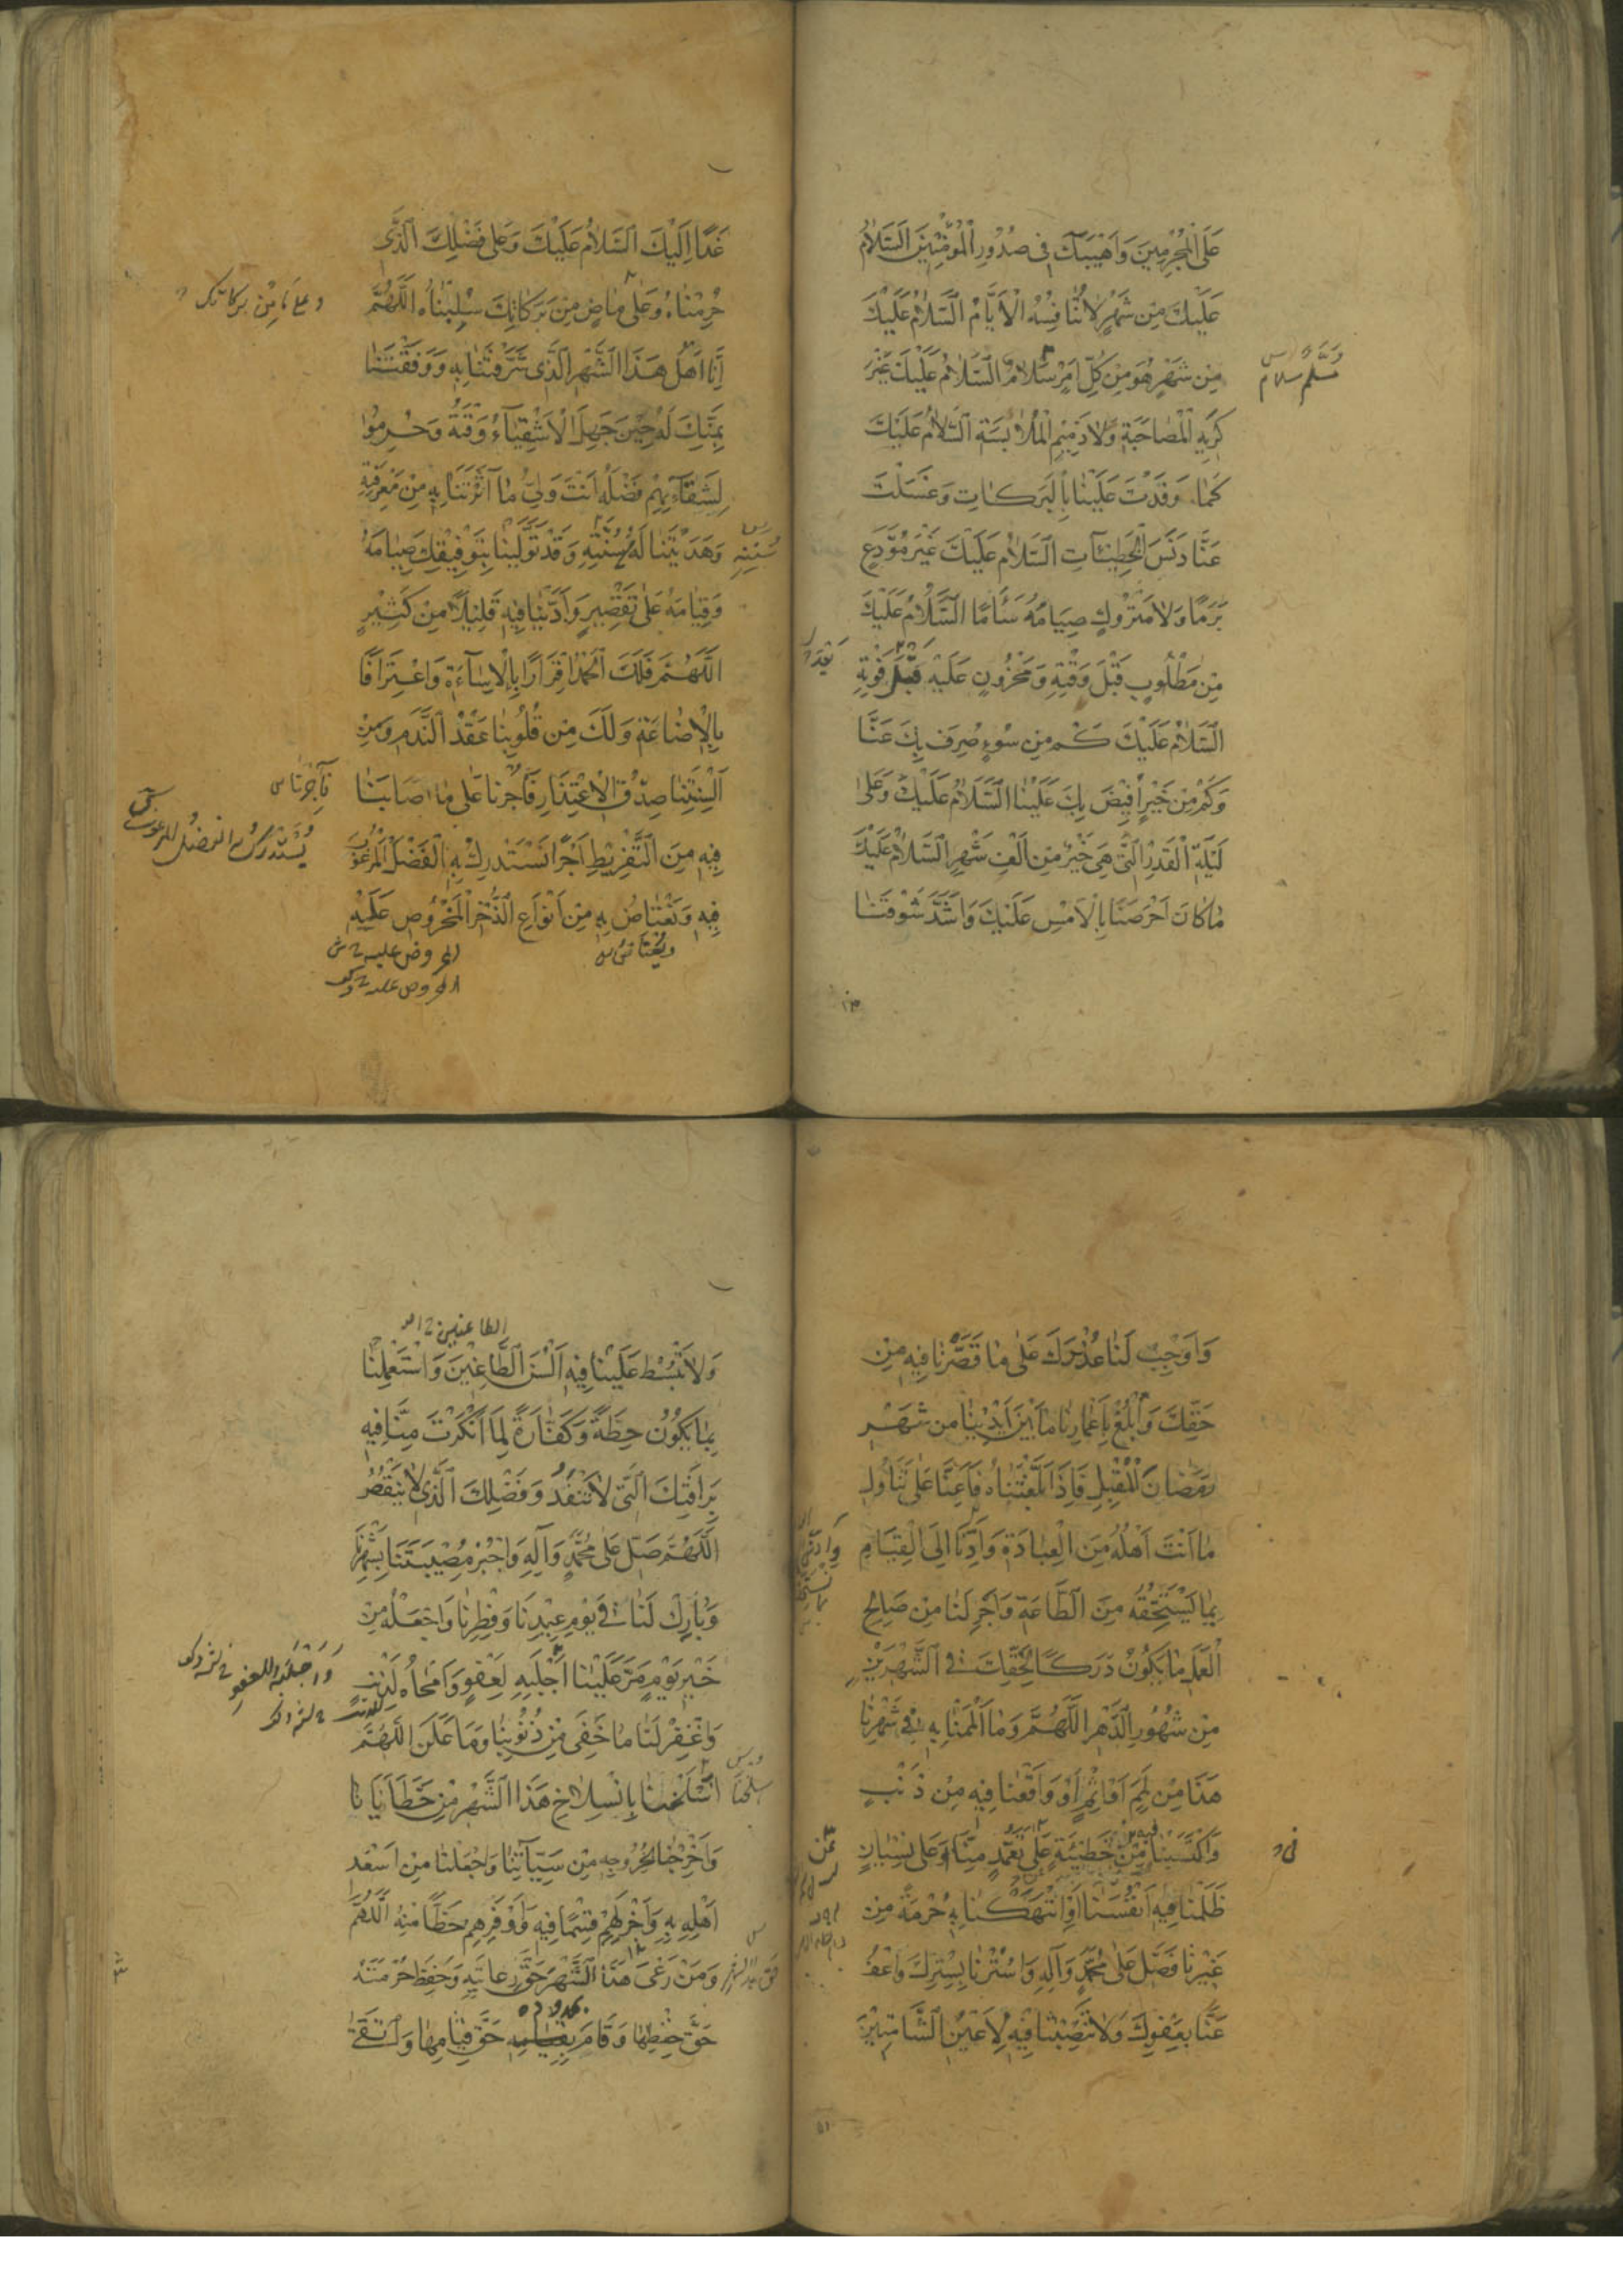 عَلَى الْمُجْرِمِينَ وَاَهْيَبَكَ فِي صُدُورِ الْمُؤْمِنِينَ اَلسَّلَامُ
عَلَيْكَ مِنْ شَهْرٍ لَا تُنَافِسُهُ الْاَيَّامُ اَلسَّلَامُ عَلَيْكَ
مِنْ شَهْرٍ هُوَ مِنْ كُلِّ اَمْرٍ سَلَامٌ اَلسَّلَامُ عَلَيْكَ غَيْرَ
كَرِيهِ الْمُصَاحَبَةِ وَلَا ذَمِيمِ الْمُلَابَسَةِ اَلسَّلَامُ عَلَيْكَ
كَمَا وَفَدْتَ عَلَيْنَا بِالْبَرَكَاتِ وَغَسَلْتَ
عَنَّا دَنَسَ الْخَطِيئَاتِ اَلسَّلَامُ عَلَيْكَ غَيْرَ مُوَدَّعٍ
بَرَمًا وَلَا مَتْرُوكٍ صِيَامُهُ سَأَمًا اَلسَّلَامُ عَلَيْكَ
مِنْ مَطْلُوبٍ قَبْلَ وَقْتِهِ وَمَحْزُونٍ عَلَيْهِ قَبْلَ فَوْتِهِ
اَلسَّلَامُ عَلَيْكَ كَمْ مِنْ سُوءٍ صُرِفَ بِكَ عَنَّا
وَكَمْ مِنْ خَيْرٍ اُفِيضَ بِكَ عَلَيْنَا اَلسَّلَامُ عَلَيْكَ وَعَلَى
لَيْلَةِ الْقَدْرِ الَّتِي هِيَ خَيْرٌ مِنْ اَلْفِ شَهْرٍ اَلسَّلَامُ عَلَيْكَ
مَا كَانَ اَحْرَصَنَا بِالْاَمْسِ عَلَيْكَ وَاَشَدَّ شَوْقَنَا
غَدًا اِلَيْكَ اَلسَّلَامُ عَلَيْكَ وَعَلَى فَضْلِكَ الَّذِي
حُرِمْنَاهُ وَعَلَى مَاضٍ مِنْ بَرَكَاتِكَ سُلِبْنَاهُ اَللّٰهُمَّ
وعلى مَا مِنْ بركاتك
اِنَّا اَهْلُ هَذَا الشَّهْرِ الَّذِي شَرَّفْتَنَا بِهِ وَوَفَّقْتَنَا
بِمَنِّكَ لَهُ حِينَ جَهِلَ الْاَشْقِيَاءُ وَقْتَهُ وَحُرِمُوا
لِشَقَائِهِمْ فَضْلَهُ اَنْتَ وَلِيُّ مَا آثَرْتَنَا بِهِ مِنْ مَعْرِفَتِهِ
وَهَدَيْتَنَا لَهُ مِنْ سُنَّتِهِ وَقَدْ تَوَلَّيْنَا بِتَوْفِيقِكَ صِيَامَهُ
وَقِيَامَهُ عَلَى تَقْصِيرٍ وَاَدَّيْنَا فِيهِ قَلِيلًا مِنْ كَثِيرٍ
اَللّٰهُمَّ فَلَكَ الْحَمْدُ اِقْرَارًا بِالْاِسَاءَةِ وَاعْتِرَافًا
بِالْاِضَاعَةِ وَلَكَ مِنْ قُلُوبِنَا عَقْدُ النَّدَمِ وَمِنْ
اَلْسِنَتِنَا صِدْقُ الْاِعْتِذَارِ فَأْجُرْنَا عَلَى مَا اَصَابَنَا
فَآجِرْنَا س
فِيهِ مِنَ التَّفْرِيطِ اَجْرًا نَسْتَدْرِكُ بِهِ الْفَضْلَ الْمَرْغُوبَ
فِيهِ وَنَعْتَاضُ بِهِ مِنْ اَنْوَاعِ الذُّخْرِ الْمَحْرُوصِ عَلَيْهِ
وَاَوْجِبْ لَنَا عُذْرَكَ عَلَى مَا قَصَّرْنَا فِيهِ مِنْ
حَقِّكَ وَابْلُغْ بِاَعْمَارِنَا مَا بَيْنَ اَيْدِينَا مِنْ شَهْرِ
رَمَضَانَ الْمُقْبِلِ فَاِذَا بَلَّغْتَنَاهُ فَاَعِنَّا عَلَى تَنَاوُلِ
مَا اَنْتَ اَهْلُهُ مِنَ الْعِبَادَةِ وَاَدِّنَا اِلَى الْقِيَامِ
بِمَا يَسْتَحِقُّهُ مِنَ الطَّاعَةِ وَاَجْرِ لَنَا مِنْ صَالِحِ
الْعَمَلِ مَا يَكُونُ دَرَكًا لِحَقِّكَ فِي الشَّهْرَيْنِ
مِنْ شُهُورِ الدَّهْرِ اَللّٰهُمَّ وَمَا اَلْمَمْنَا بِهِ فِي شَهْرِنَا
هَذَا مِنْ لَمَمٍ اَوْ اِثْمٍ اَوْ وَاقَعْنَا فِيهِ مِنْ ذَنْبٍ
وَاكْتَسَبْنَا مِنْ خَطِيئَةٍ عَلَى تَعَمُّدٍ مِنَّا وَعَلَى نِسْيَانٍ
ظَلَمْنَا فِيهِ اَنْفُسَنَا اَوِ انْتَهَكْنَا بِهِ حُرْمَةً مِنْ
غَيْرِنَا فَصَلِّ عَلَى مُحَمَّدٍ وَآلِهِ وَاسْتُرْنَا بِسِتْرِكَ وَاعْفُ
عَنَّا بِعَفْوِكَ وَلَا تَنْصِبْنَا فِيهِ لِاَعْيُنِ الشَّامِتِينَ
وَلَا تَبْسُطْ عَلَيْنَا فِيهِ اَلْسُنَ الطَّاغِينَ وَاسْتَعْمِلْنَا
بِمَا يَكُونُ حِطَّةً وَكَفَّارَةً لِمَا اَنْكَرْتَ مِنَّا فِيهِ
بِرَأْفَتِكَ الَّتِي لَا تَنْفَدُ وَفَضْلِكَ الَّذِي لَا يَنْقُصُ
اَللّٰهُمَّ صَلِّ عَلَى مُحَمَّدٍ وَآلِهِ وَاجْبُرْ مُصِيبَتَنَا بِشَهْرِنَا
وَبَارِكْ لَنَا فِي يَوْمِ عِيدِنَا وَفِطْرِنَا وَاجْعَلْهُ مِنْ
خَيْرِ يَوْمٍ مَرَّ عَلَيْنَا اَجْلَبِهِ لِعَفْوٍ وَاَمْحَاهُ لِذَنْبٍ
وَاغْفِرْ لَنَا مَا خَفِيَ مِنْ ذُنُوبِنَا وَمَا عَلَنَ اَللّٰهُمَّ
اسْلَخْنَا بِانْسِلَاخِ هَذَا الشَّهْرِ مِنْ خَطَايَانَا
وَاَخْرِجْنَا بِخُرُوجِهِ مِنْ سَيِّئَاتِنَا وَاجْعَلْنَا مِنْ اَسْعَدِ
اَهْلِهِ بِهِ وَاَجْزَلِهِمْ قِسْمًا فِيهِ وَاَوْفَرِهِمْ حَظًّا مِنْهُ اَللّٰهُمَّ
وَمَنْ رَعَى هَذَا الشَّهْرَ حَقَّ رِعَايَتِهِ وَحَفِظَ حُرْمَتَهُ
حَقَّ حِفْظِهَا وَقَامَ بِحُدُودِهِ حَقَّ قِيَامِهَا وَاتَّقَى